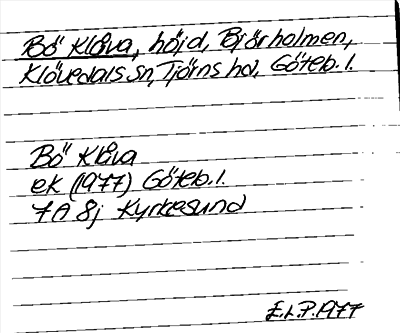 Bö Klåva, höjd, Björholmen,
Klövedals sn, Tjörns hd, Göteb. l.
Bö Klåva
ek (1977) Göteb. l.
7A 8j Kyrkesund
E.L.P. 1977